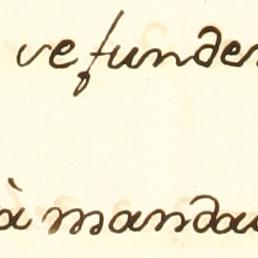 refunder
à mandar